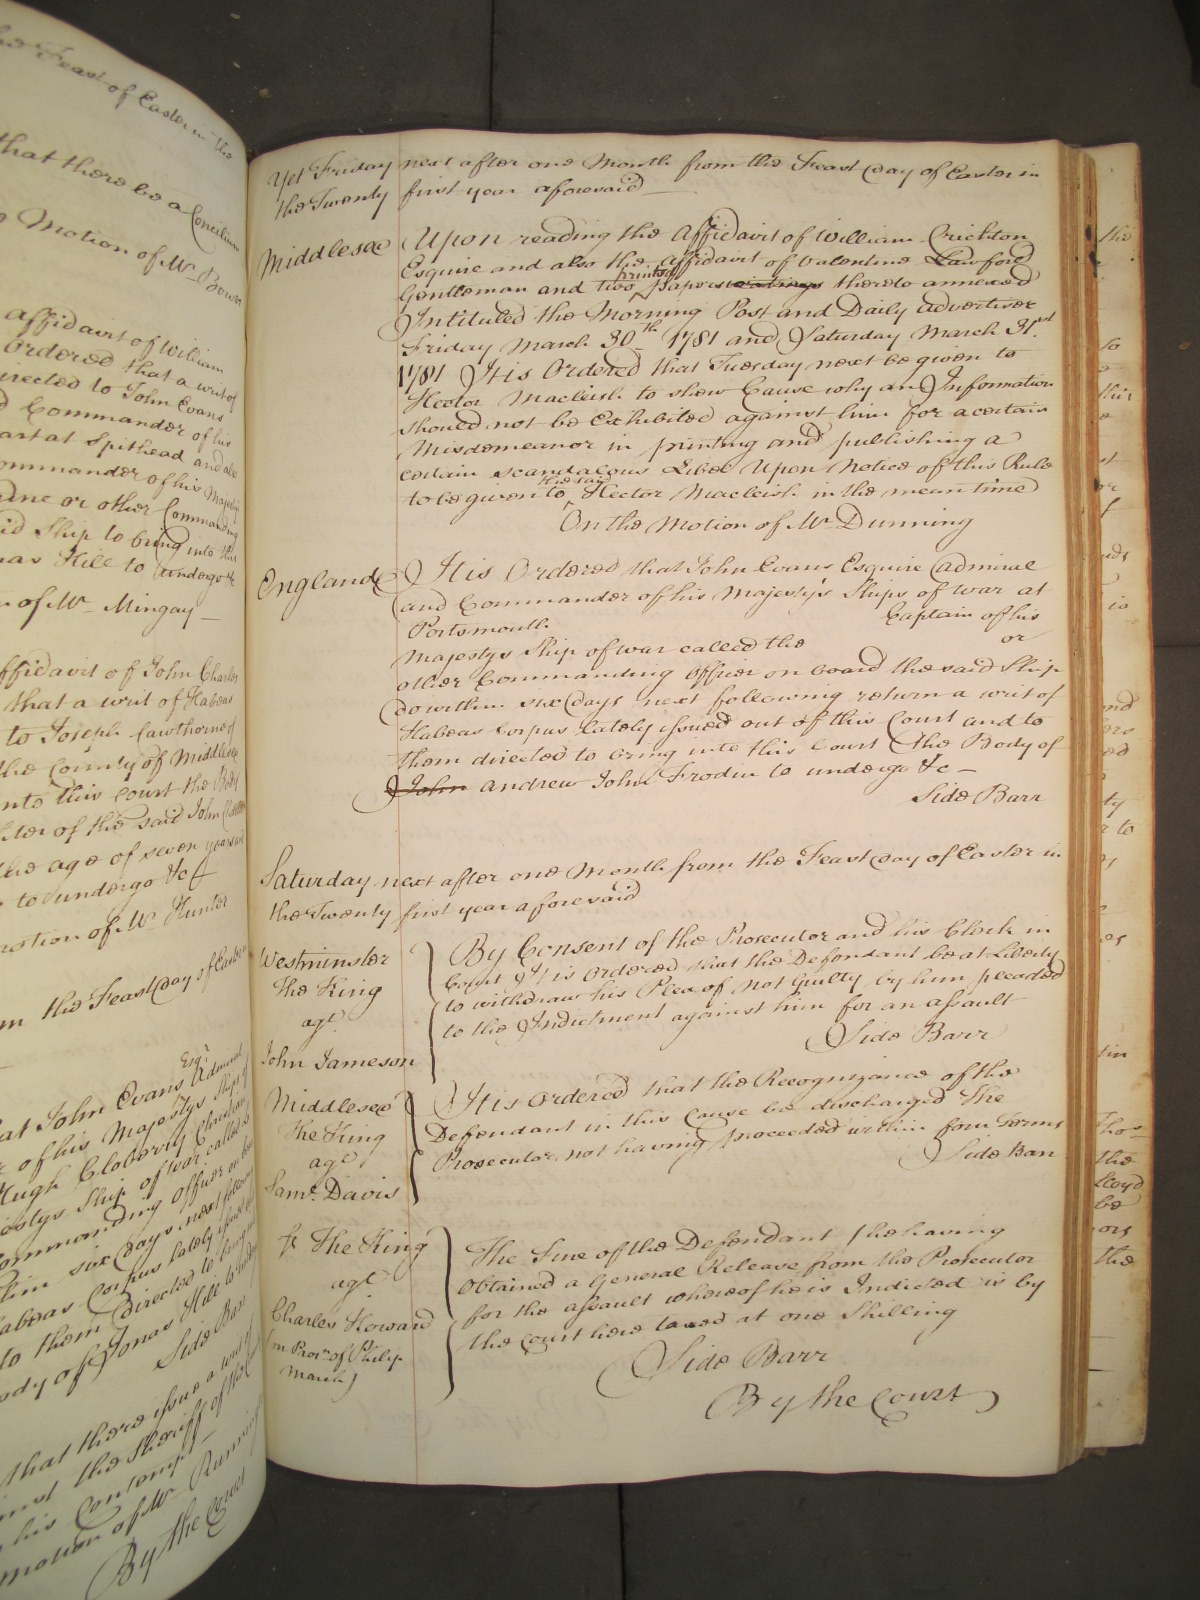 Feast of Easter in the
that there be a Concilium
Motion of Mr. Bower
affidavit of William
Ordered that a writ of
directed to John Evans
Commander of his
at Spithead and
Commander of his Majesty
or other Commanding
Ship to bring into this
Hill to undergo &c
of Mr. Mingay
affidavit of John Charles
that a writ of Habeas
to Joseph Cawthorne of
the County of Middlesex
into this Court the Body
of the said John
the age of seven years
to undergo &c
motion of Mr. Hunter
the Feast day of Easter
Esqr.
that John Evans Admiral
of his Majestys Ships of
Hugh Cloberry Christian
Ship of war called
Commanding Officer on
six days next following
Habeas Corpus lately issued
to them directed to bring
Body of Jonas Hill to
Side Bar
that there issue a writ
the Sheriff of the
his Contempt
motion of Mr.
By the Court
Yet Friday next after one Month from the Feast Day of Easter in
the Twenty first year aforesaid
Middlesex Upon reading the Affidavit of William Crichton
Esquire and also the affidavit of Valentine Lawford
Gentleman and two printed papers thereto annexed
Intituled the Morning Post and Daily Advertiser
Friday March 30th 1781 and Saturday March 31st
1781 It is Ordered that Tuesday next be given to
Hector Macleish to shew Cause why an Information
should not be Exhibited against him for a certain
Misdemeanor in printing and publishing a
certain scandalous Libel Upon Notice of this Rule
to be given to the said Hector Macleish in the mean time
On the Motion of Mr Dunning
England It is Ordered that John Evans Esquire Admiral
and Commander of his Majesty's Ships of war at
Portsmouth Captain of his
Majestys Ship of war called the or
other Commanding Officer on board the said Ship
do within six days next following return a writ of
Habeas Corpus lately issued out of this Court and to
them directed to bring into this Court the Body of
John Andrew John Frodin to undergo &c
Side Barr
Saturday next after one Month from the Feast day of Easter in
the Twenty first year aforesaid
Westminster
the King
agt.
John Jameson
By Consent of the Prosecutor and his Clerk in
Court It is Ordered that the Defendant be at Liberty
to withdraw his Plea of Not Guilty by him pleaded
to the Indictment against him for an assault
Side Barr
Middlesex
The King
agt.
Saml. Davis
It is Ordered that the Recognizance of the
Defendant in this Cause be discharged The
Prosecutor not having proceeded within four Terms
Side Barr
The King
agt.
Charles Howard
on Pros. of Philip
March)
The Fine of the Defendant he having
obtained a General Release from the Prosecutor
for the assault whereof he is Indicted is by
the Court here taxed at one Shilling
Side Barr
By the Court